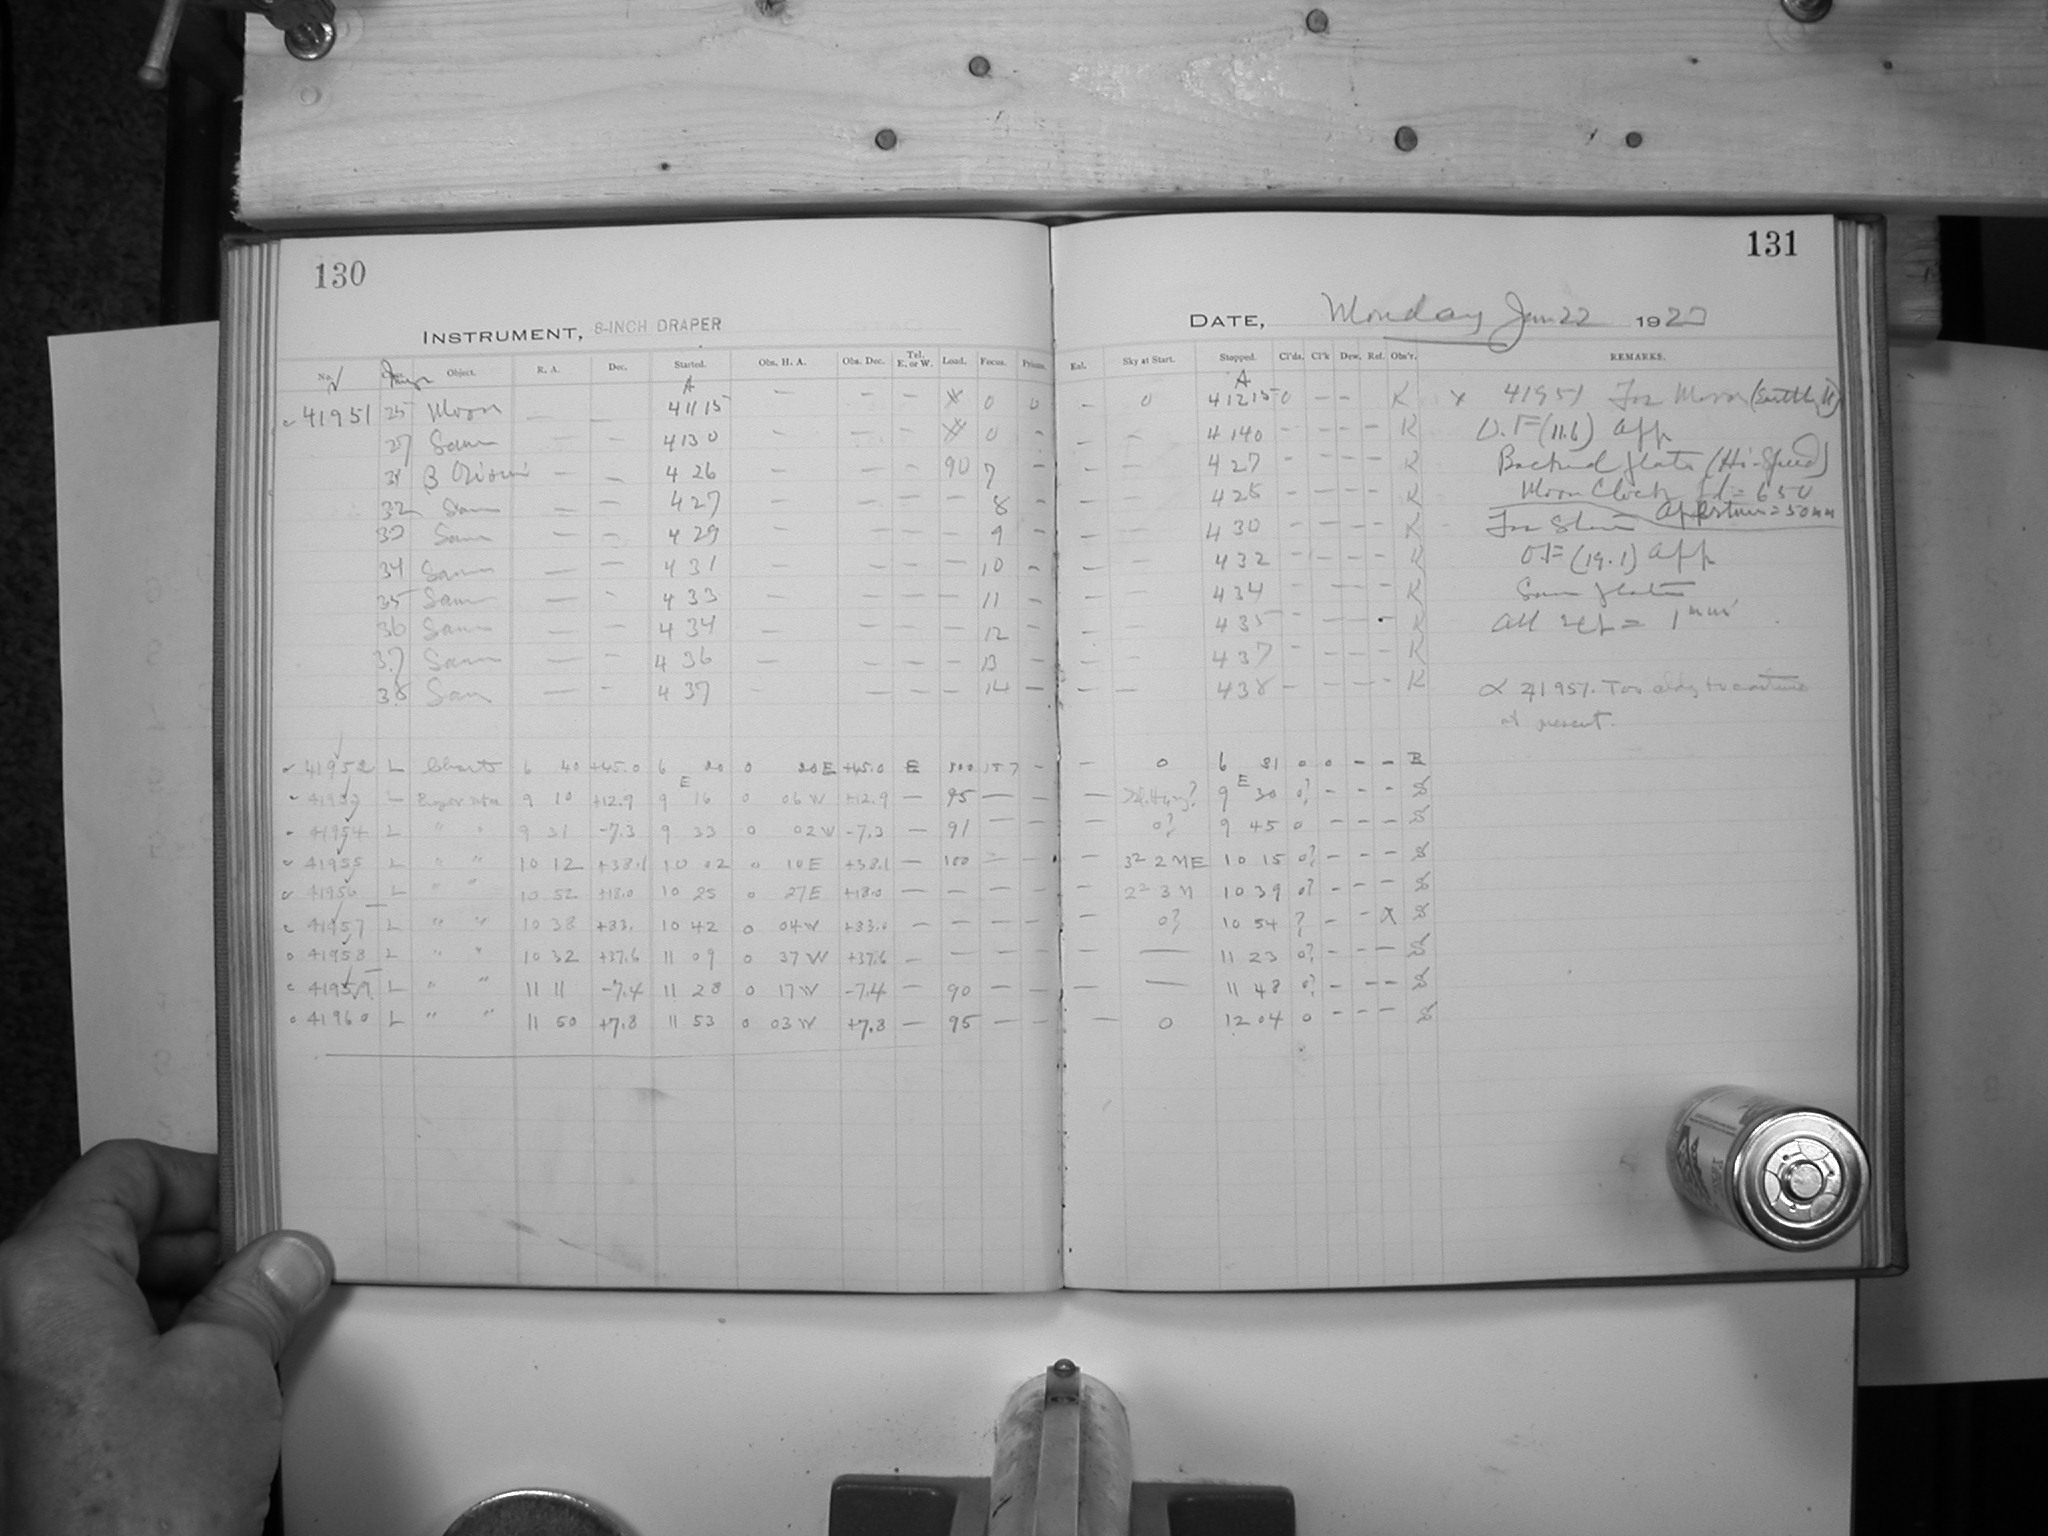 130
INSTRUMENT, 8-INCH DRAPER
No. Object. R. A. Dec. Started. Obs. H. A. Obs. Dec. Tel. E. or W. Load. Focus. Prisms.
A
41951 25 Moon — — 41115 — — — 0 0
27 Same — — 4130 — — — 0 —
31 B Orionis — — 4 26 — — — 90 7 —
32 Same — — 4 27 — — — — 8 —
33 Same — — 4 29 — — — — 9 —
34 Same — — 4 31 — — — — 10 —
35 Same — — 4 33 — — — — 11 —
36 Same — — 4 34 — — — — 12 —
37 Same — — 4 36 — — — — 13 —
38 Same — — 4 37 — — — — 14 —
41952 L Charts 6 40 +45.0 6 20 0 20 E +45.0 E 100 —
E
41953 L 9 10 +12.9 9 16 0 06 W +12.9 — 95 — —
41954 L " " 9 31 -7.3 9 33 0 02 W -7.3 — 91 — —
41955 L " " 10 12 +38.1 10 02 0 10 E +38.1 — 100 — —
41956 L " " 10 52 +18.0 10 25 0 27 E +18.0 — — — —
41957 L " " 10 38 +33. 10 42 0 04 W +33.0 — — — —
41958 L " " 10 32 +37.6 11 09 0 37 W +37.6 — — — —
41959 L " " 11 11 -7.4 11 28 0 17 W -7.4 — 90 — —
41960 L " " 11 50 +7.8 11 53 0 03 W +7.8 — 95 — —
131
DATE, Monday Jan 22 1923
Enl. Sky at Start. Stopped. Cl'ds. Cl'k Dew. Ref. Obs'r. REMARKS.
A
— 0 41215 0 — — K x 41951 For Moon
— — 4 140 — — — — K O.F (11.6) app
— — 4 27 — — — — K Backed plate (Hi-Speed)
— — 4 25 — — — — K Moon Clock = 650
Aperture = 50 mm
— — 4 30 — — — — K For
— — 4 32 — — — — K O.F (19.1) app
— — 4 34 — — — K Same plate
— — 4 35 — — — K All = 1 min
— — 4 37 — — — — K
— — 4 38 — — — — K 41957. Too cldy to continue
at present.
— 0 6 31 0 0 — — B
E
— 9 30 0? — — — S
— 0? 9 45 0 — — — S
— 32 2 NE 10 15 0? — — — S
— 22 3 N 10 39 0? — — — S
— 0? 10 54 ? — — X S
— — 11 23 0? — — — S
— — 11 48 0? — — — S
— 0 12 04 0 — — — S